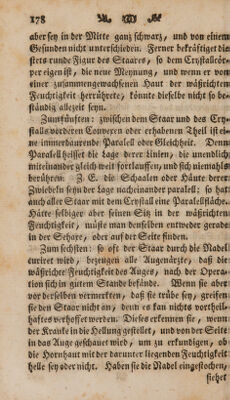 178
aber sey in der Mitte ganz schwarz, und von einem
Gesunden nicht unterschieden. Ferner bekräftiget die
stets runde Figur des Staares, so dem Crystallcör-
per eigen ist, die neue Meynung, und wenn er von
einer zusammengewachsenen Haut der wäßrichten
Feuchtigkeit herrührte, könnte dieselbe nicht so be-
ständig allezeit seyn.
Zumfünften: zwischen dem Staar und des Cry-
stalls vorderen Convexen oder erhabenen Theil ist ei-
ne immerdaurende Parallel oder Gleichheit. Denn
Parallell heisset die Lage derer Linien, die unendlich
miteinander gleich weit fortlauffen, und sich niemahls
berühren. Z. E. die Schaalen oder Häute derer
Zwiebeln seyn der Lage nacheinander parallell; so hat
auch aller Staar mit dem Crystall eine Parallelfläche.
Hätte selbiger aber seinen Sitz in der wäßrichten
Feuchtigkeit, müste man denselben entweder gerade
in der Sehare, oder auf der Seite finden.
Zum sechsten: so oft der Staar durch die Nadel
curiret wird, bezeugen alle Augenärzte, daß die
wäßrichte Feuchtigkeit des Auges, nach der Opera-
tion sich in gutem Stande befände. Wenn sie aber
vor derselben vermerkten, daß sie trübe sey, greifen
sie den Staar nicht an, denn es kan nichts vortheil-
haftes verhoffet werden. Dieses erkennen sie, wenn
der Kranke in die Hellung gestellet, und von der Seite
in das Auge geschauet wird, um zu erkundigen, ob
die Hornhaut mit der darunter liegenden Feuchtigkeit
helle sey oder nicht. Haben sie die Nadel eingestochen,
siehet